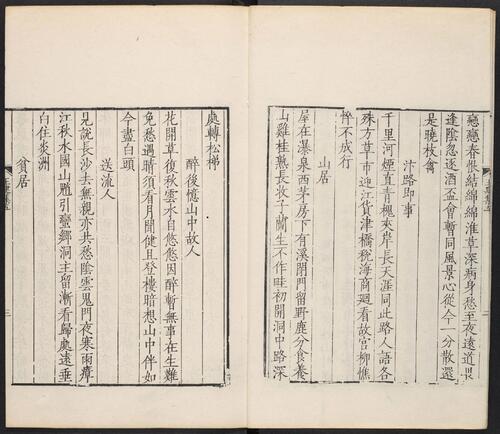 戀戀春恨結綿綿淮草深病身愁至夜遠道畏
逢陰忽逐酒盃會暫同風景心從今一分散還
是曉枝禽
汴路即事
千里河煙直青槐夾岸長天涯同此路人語各
殊方草市迎江貨津橋稅海商廻看故宮柳憔
悴不成行
山居
屋在瀑泉西茅房下有溪閉門留野鹿分食養
山雞桂熟長收子蘭生不作畦初開洞中路深
處轉松梯
醉後憶山中故人
花開草復秋雲水自悠悠因醉暫無事在生難
免愁遇晴須看月鬬健且登樓暗想山中伴如
今盡白頭
送流人
見說長沙去無親亦共愁陰雲鬼門夜寒雨瘴
江秋水國山魈引蠻鄉洞主留漸看歸處遠垂
白住炎洲
貧居
三